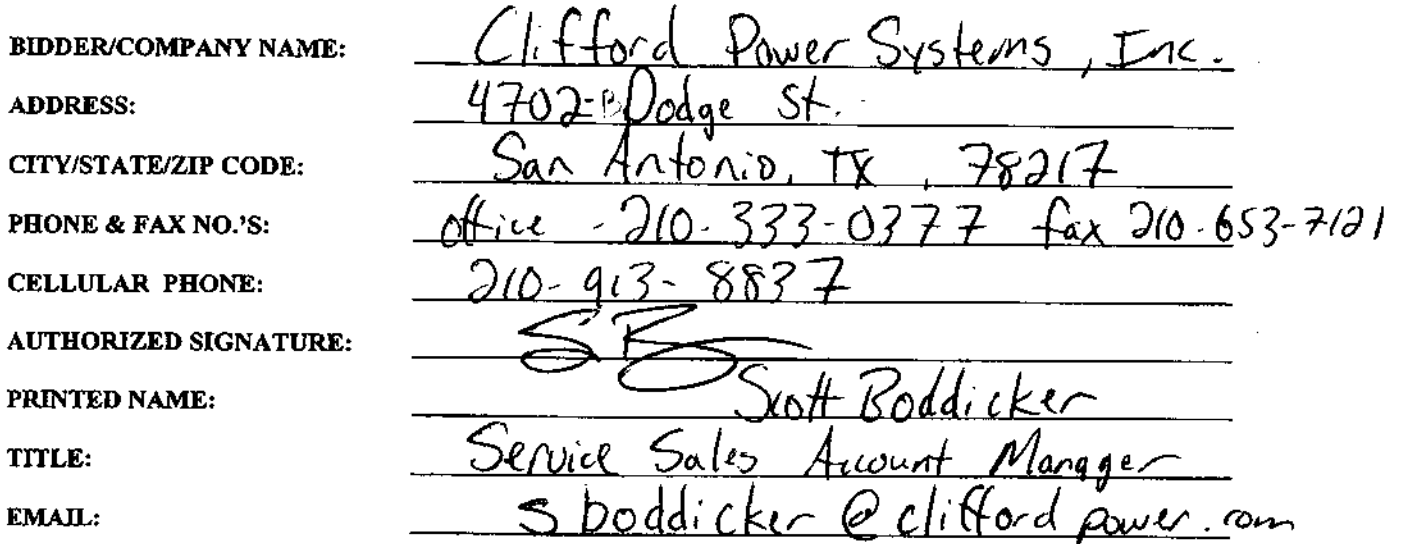 BIDDER/COMPANY NAME: Clifford Power Systems, Inc.
ADDRESS: 4702-B Dodge St.
CITY/STATE/ZIP CODE: San Antonio, TX, 78217
PHONE & FAX NO.'S: office - 210-333-0377 fax 210-653-7121
CELLULAR PHONE: 210-913-8837
AUTHORIZED SIGNATURE: SB
PRINTED NAME: Scott Boddicker
TITLE: Service Sales Account Manager
EMAIL: sboddicker@cliffordpower.com